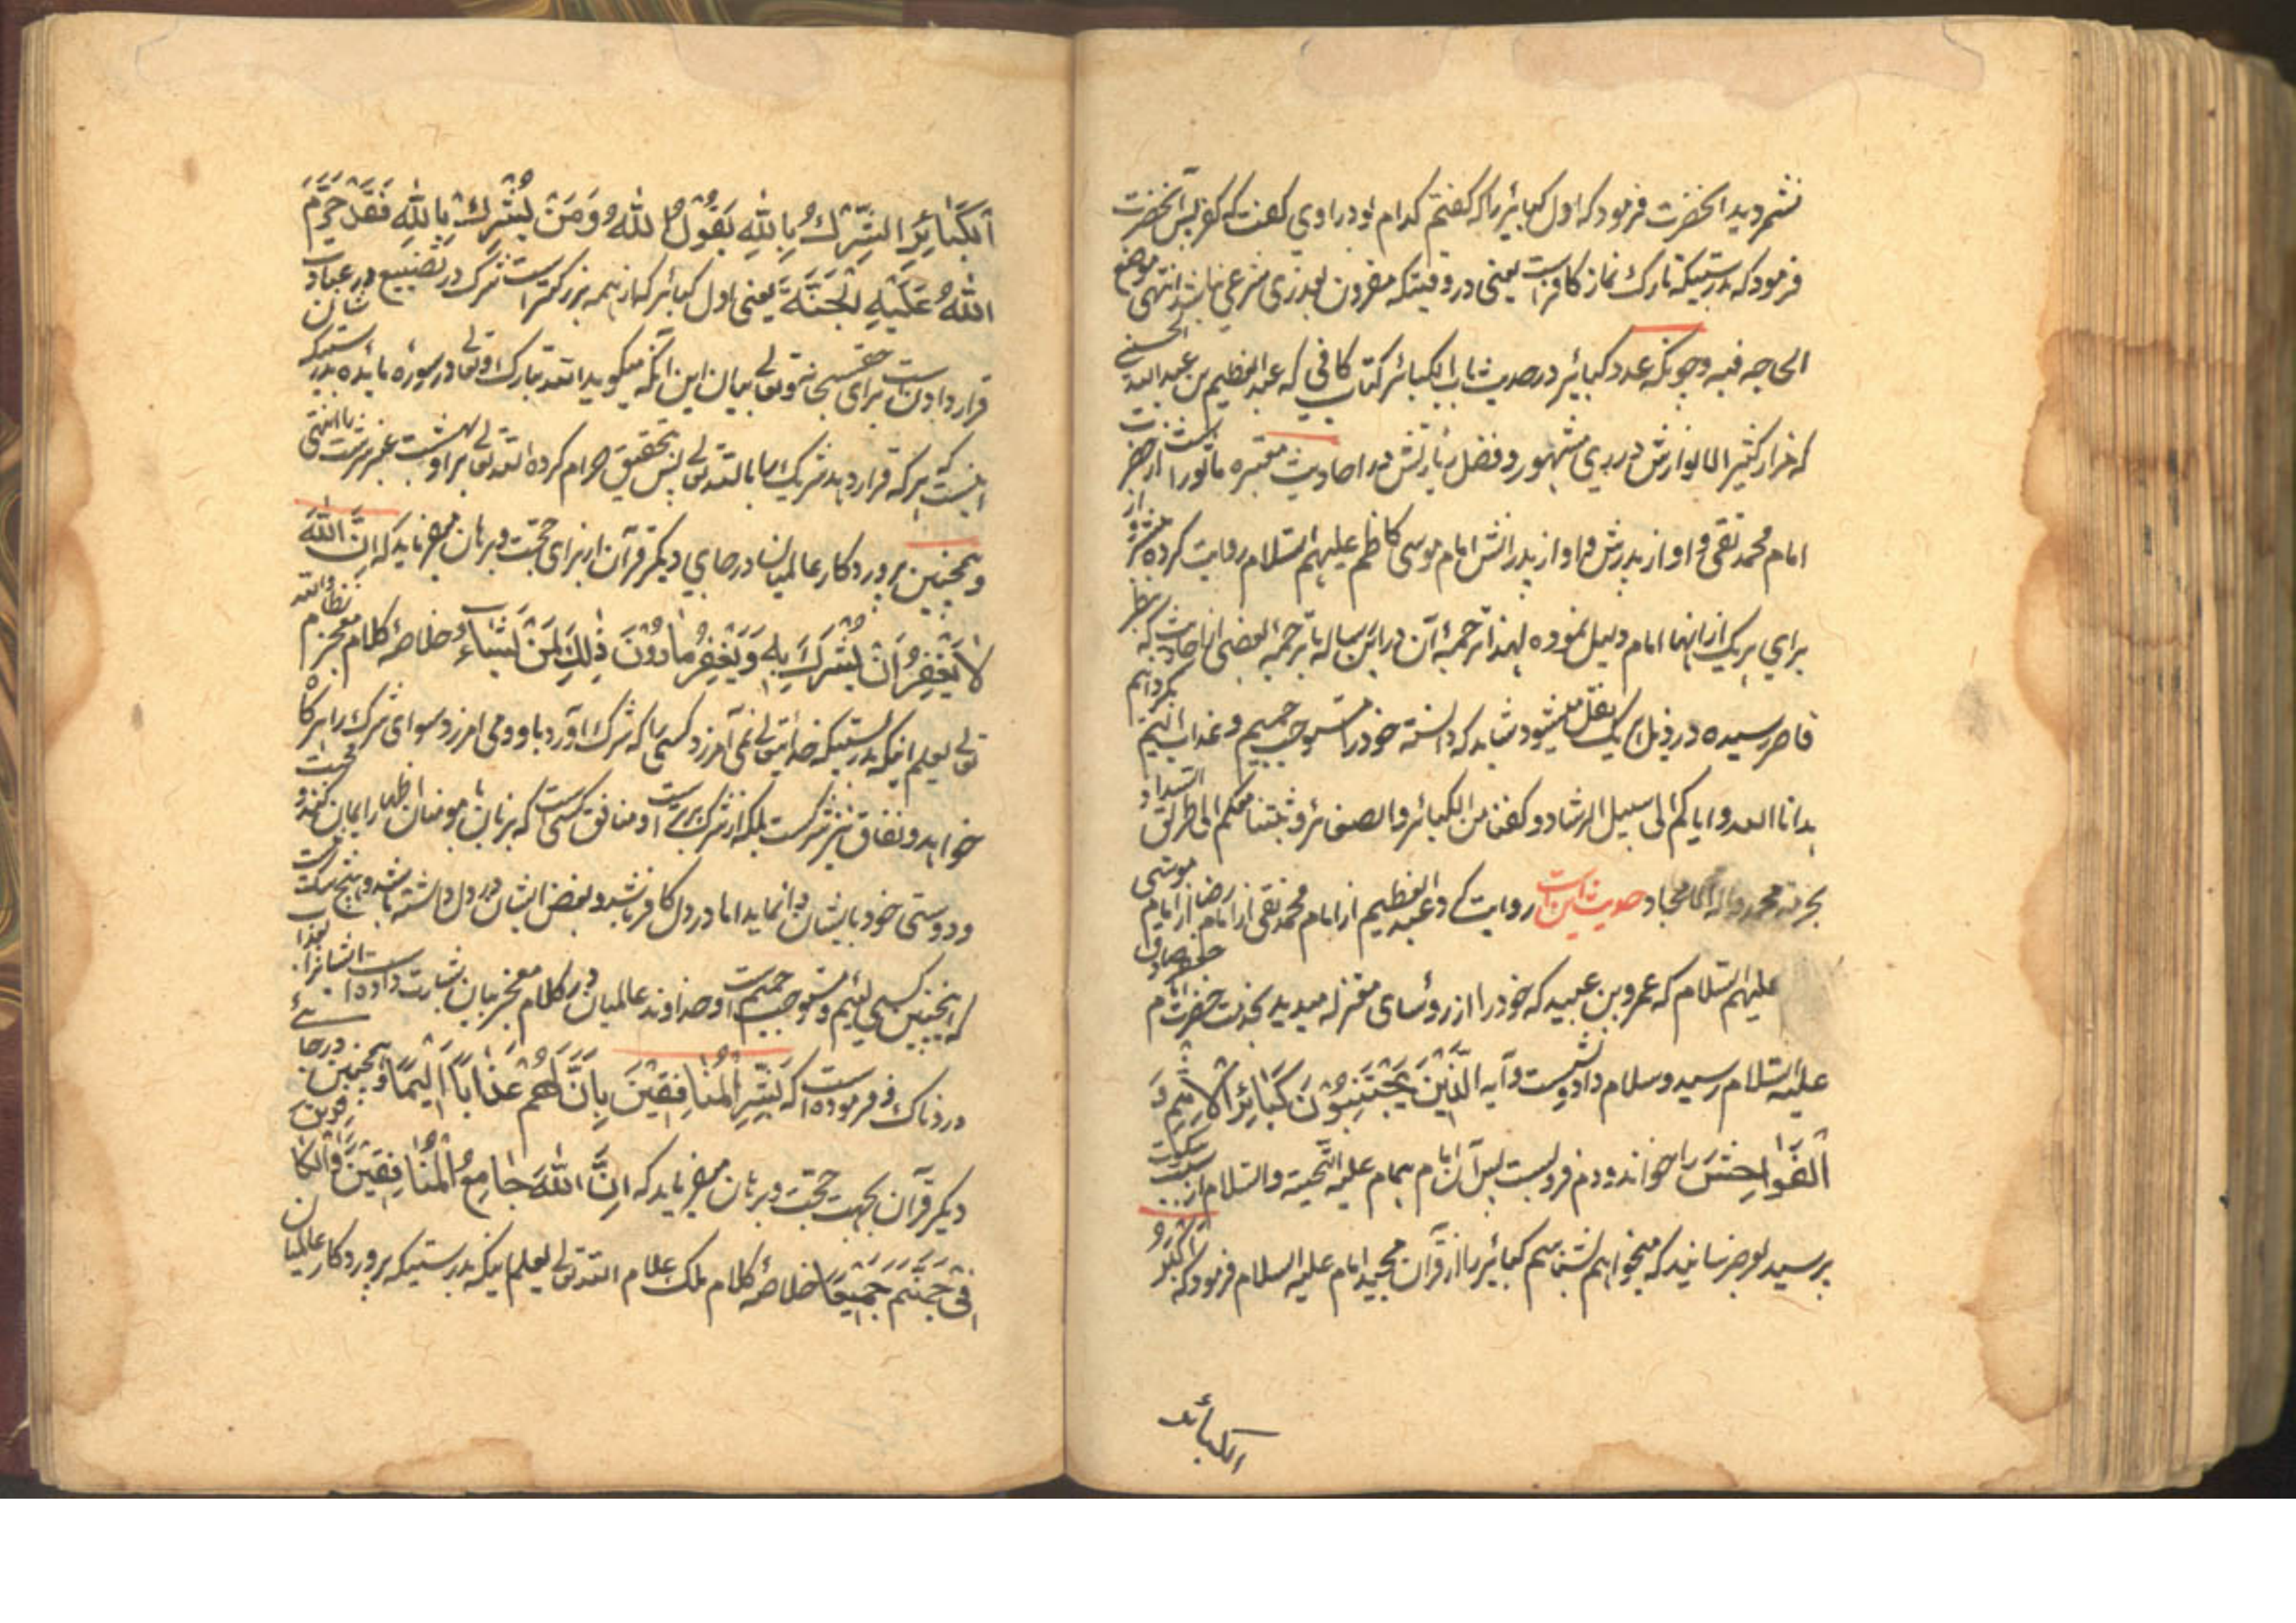 نشمردید انحضرت فرمود که اول کبائر را که کفتم کدام بود راوی کفت که کفر پس آنحضرت
فرمود که بدرستیکه تارک نماز کافر است یعنی در وقتیکه مقرون بعذری شرعی نباشد انتهی موضع
الحاجه فیه و چونکه عدد کبائر در حدیث باب الکبائر کتاب کافی که عبد العظیم بن عبد الله الحسنی
که مزار کثیر الانوارش در ری مشهور و فضل زیارتش در احادیث معتبره ماثور است از حضرت
امام محمد تقی و او از پدرش و او از پدرانش امام موسی کاظم علیهم السلام روایت کرده
برای هر یک از انها امام دلیل نموده لهذا ترجمهٔ آن در این رساله با ترجمهٔ بعضی احادیث که بنظر
قاصر رسیده در ذیل هر یک نقل میشود شاید که دانسته خود را مستوجب جحیم و عذاب الیم نکردانیم
هدانا الله و ایاکم الی سبیل الرشاد و کفنا من الکبائر و الصغائر و ثبتنا معکم الی طریق السداد
بحرمة محمد و اله الامجاد حدیث این است روایت کرد عبد العظیم از امام محمد تقی از امام رضا از امام موسی
علیهم السلام که عمرو بن عبید که خود را از رؤسای معتزله میدید بخدمت حضرت امام جعفر صادق
علیه السلام رسید و سلام داد و نشست و آیه الَّذِیْنَ یَجْتَنِبُوْنَ کَبَائِرَ الْاِثْمِ وَ
الْفَوَاحِشَ را خواند و دم فرو بست پس آن امام همام علیه التحیة و السلام از سکت
پرسید بعرض رسانید که میخواهم بشناسم کبائر را از قرآن مجید امام علیه السلام فرمود که اَکْبَرُ
الکبائر
اَلْکَبَائِرِ الشِّرْكُ بِاللهِ یَقُوْلُ اللهُ وَمَنْ یُشْرِكْ بِاللهِ فَقَدْ حَرَّمَ
اللهُ عَلَیْهِ الْجَنَّةَ یعنی اول کبائر که از همه بزرکتر است شرک در تضییع در عبادت شان
قرار دادن است برای حق سبحانه و تعالی بیان این آنکه میکوید الله تبارک و تعالی در سورهٔ مائده بدرستیکه
اینست که هر که قرار دهد شریک را با الله تعالی پس بتحقیق حرام کرده الله تعالی بر او بهشت عنبر سرشت را انتهی
و همچنین پرورد کار عالمیان در جای دیکر قرآن از برای حجت و برهان میفرماید که اِنَّ اللهَ
لَا یَغْفِرُ اَنْ یُشْرَكَ بِهِ وَیَغْفِرُ مَا دُوْنَ ذٰلِكَ لِمَنْ یَشَاءُ و خلاصهٔ کلام معجز نظام والله
تعالی یعلم اینکه بدرستیکه خدایتعالی نمی آمرزد کسی را که شرک آورد باو و می امرزد سوای شرک را هر کاه
خواهد و نفاق نیز شرکست بلکه از شرک بدتر است و منافق کسی است که بزبان با مومنان اظهار ایمان کند و محبت
و دوستی خود بایشان وا نماید اما در دل کافر باشد و بغض ایشان در دل داشته باشد و هیچ شک نیست
که اینچنین کسی لئیم و مستوجب جحیم است و خداوند عالمیان در کلام معجز بیان بشارت داده است ایشانرا بعذاب
دردناک و فرموده است که بَشِّرِ الْمُنَافِقِیْنَ بِاَنَّ لَهُمْ عَذَابًا اَلِیْمًا و همچنین در جائے
دیکر قرآن بجهت حجت و برهان میفرماید که اِنَّ اللهَ جَامِعُ الْمُنَافِقِیْنَ وَالْکَافِرِیْنَ
فِیْ جَهَنَّمَ جَمِیْعًا خلاصهٔ کلام ملک علام الله تعالی یعلم اینکه بدرستیکه پرورد کار عالمیان